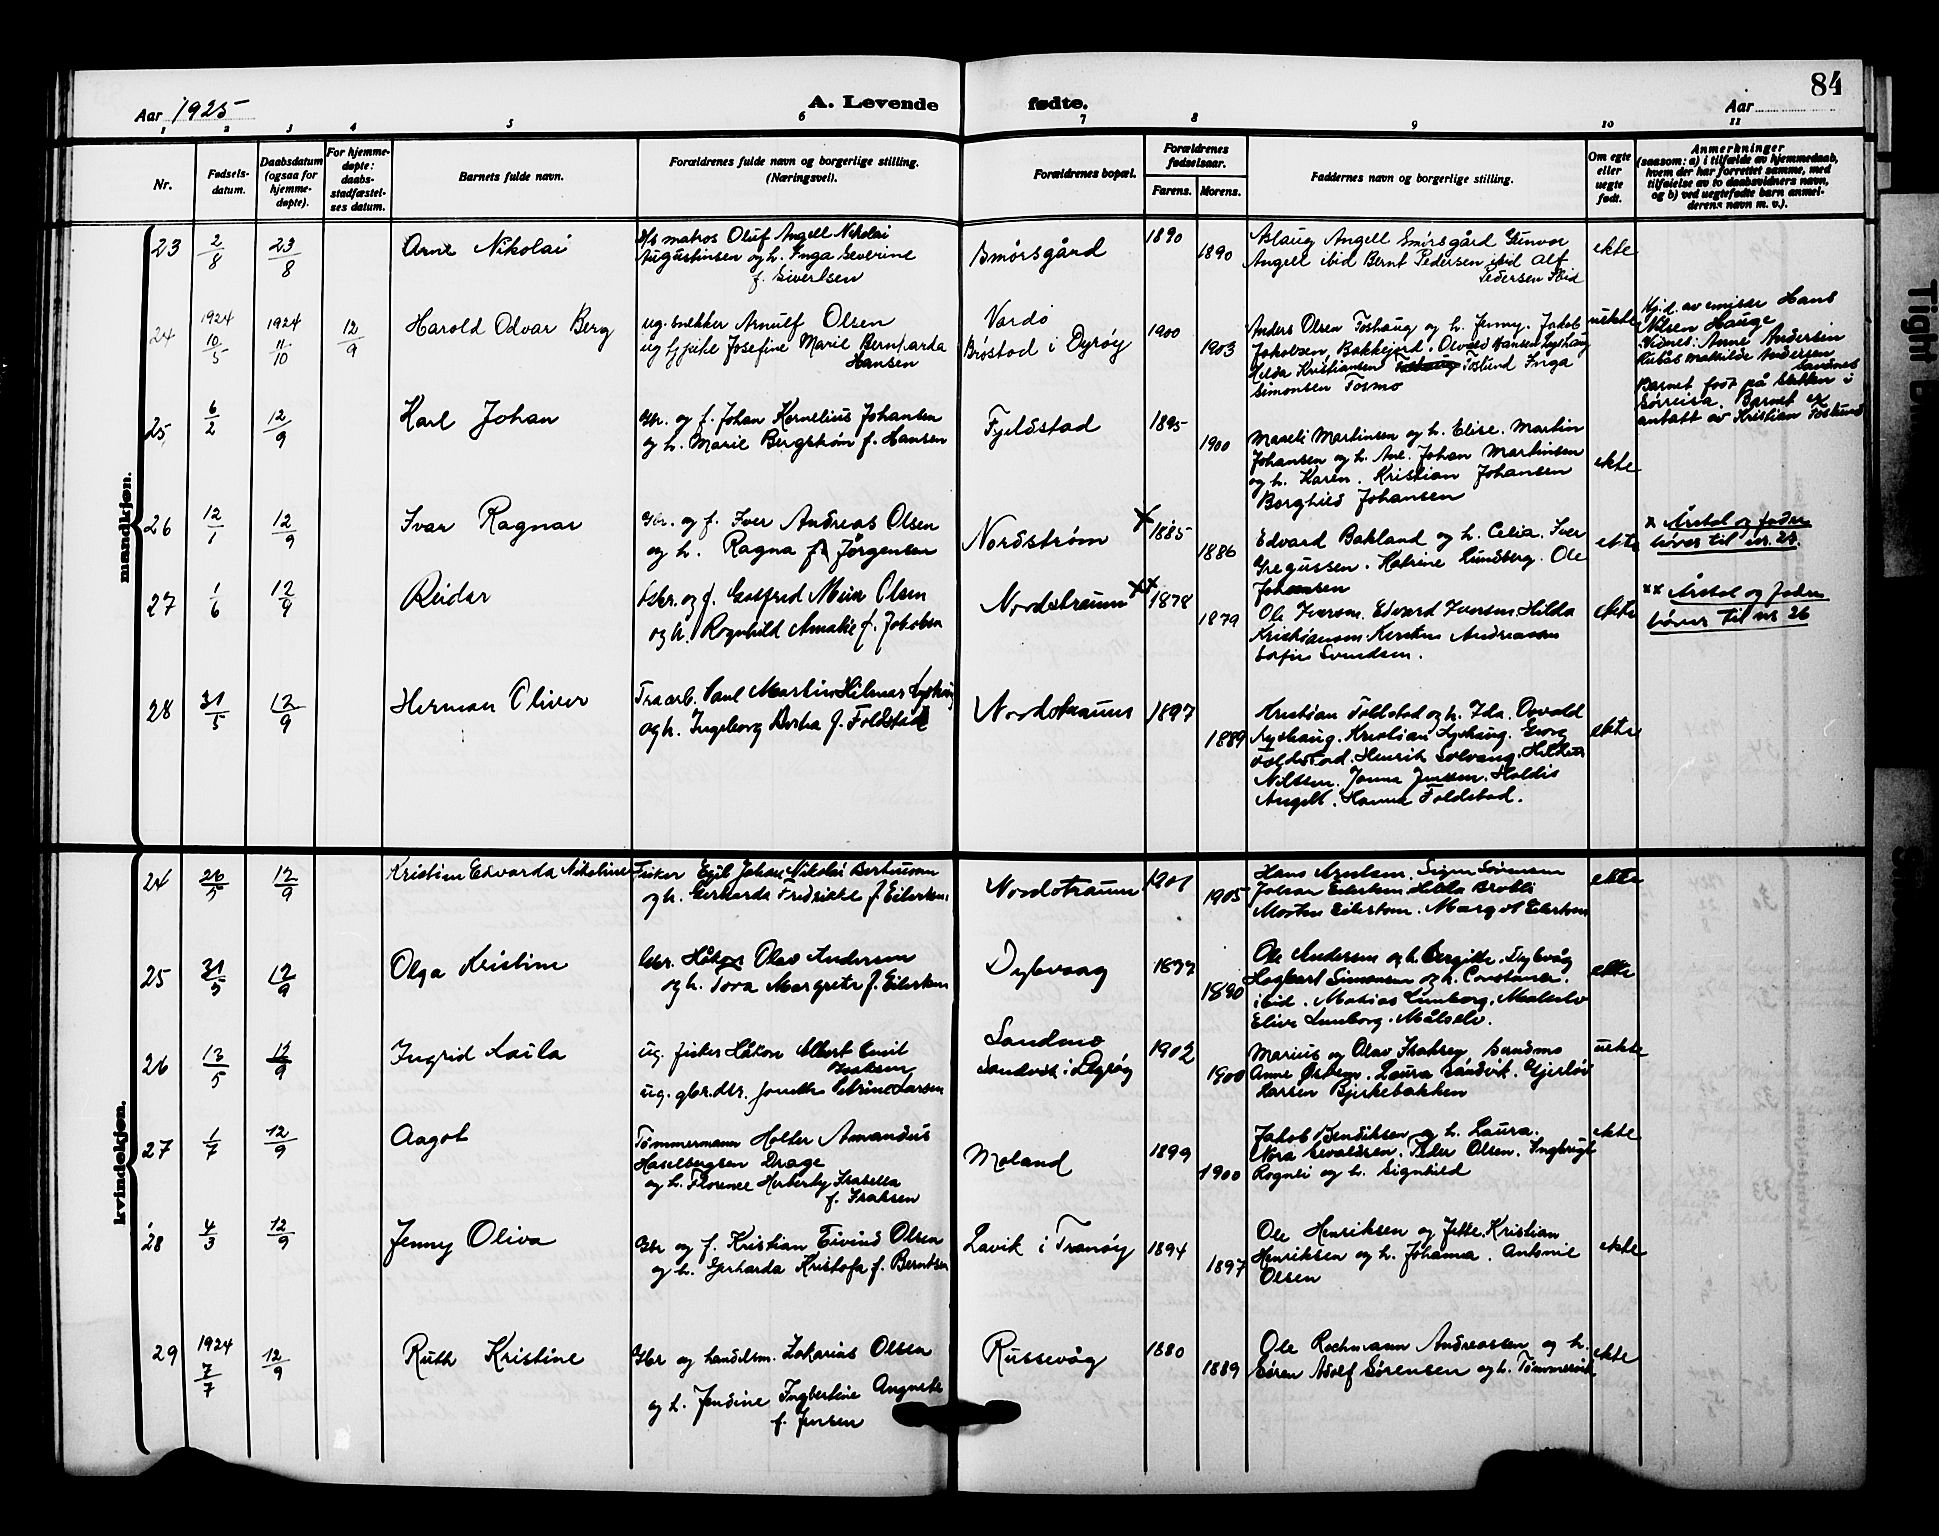 84
Aar 1925
A. Levende fødte.
Aar
1 2 3 4 5 6 7 8 9 10 11
Nr.
Fødsels-
datum.
Daabsdatum
(ogsaa for
hjemme-
døpte).
For hjemme-
døpte:
daabs-
stadfæstel-
ses datum.
Barnets fulde navn.
Forældrenes fulde navn og borgerlige stilling.
(Næringsvei).
Forældrenes bopæl.
Forældrenes
fødselsaar.
Farens. Morens.
Faddernes navn og borgerlige stilling.
Om egte
eller
uegte
født.
Anmerkninger
(saasom: a) i tilfælde av hjemmedaab,
hvem der har forrettet samme, med
tilføielse av to daabsvidners navn,
og b) ved uegtefødt barn anmel-
derens navn m. v.).
mandkjøn.
23
2/8
23/8
Arne Nikolai
matros Oluf Angell Nikolai
Augustinsen og h. Inga Severine
f. Sivertsen
Smørsgård
1890
1890
Aslaug Angell Smørsgård Gunvor
Angell ibid Bernt Pedersen ibid Alf
Pedersen ibid
ekte
24
1924
10/5
1924
11/10
12/9
Harold Odvar Berg
ug. snekker Arnulf Olsen
ug. Josefine Marie Bernharda
Hansen
Vardø
Brøstad i Dyrøy
1900
1903
Anders Olsen Toshaug og h. Jenny. Jakob
Jakobsen, Bakkejord. Olvald Hansen Lyshaug
Hilda Kristiansen Foslund Inga
Simonsen Tosmo
uekte
Hj.d. av emisær Hans
Nilsen Hauge
Vidnes: Anne Andersen
Mathilde Andersen
Barnet født på Sletten i
Sørreisa. Barnet er
antatt av Kristian Foslund
25
6/2
12/9
Karl Johan
Gbr. og f. Johan Kornelius Johansen
og h. Marie Bergstrøm f. Hansen
Fjeldstad
1895
1900
Martinsen og h. Elise. Martin
Johansen og h. Ane. Johan Martinsen
og h. Karen. Kristian Johansen
Borghild Johansen
ekte
26
12/1
12/9
Ivar Ragnar
Gbr. og f. Iver Andreas Olsen
og h. Ragna f. Jørgensen
Nordstrøm x
1885
1886
Edvard Bakland og h. Celia. Iver
Gregussen. Katrine Lundberg. Ole
Johansen
ekte
x Årstal og fadre
hører til nr. 27.
27
1/6
12/9
Reidar
Gbr. og f. Gotfred Meier Olsen
og h. Ragnhild Amalie f. Jakobsen
Nordstraum xx
1878
1879
Ole Iversen. Edvard Iversen. Hilda
Kristiansen Kirsten Andreassen
Sofie Svendsen.
ekte
xx Årstal og fadre
hører til nr 26
28
31/5
12/9
Herman Oliver
Traarb. Paul Martin Hilmar Lyshaug
og h. Ingeborg f. Foldstad
Nordstraum
1897
1889
Kristian Foldstad og h. Ida. Osvald
Lyshaug. Kristian Lyshaug. Georg
Foldstad. Henrik Solvang. Hildur
Nilsen. Janna Jensen. Haldis
Angell. Hanna Foldstad.
ekte
kvindekjøn.
24
26/5
12/9
Kristine Edvarda Nikoline
Fisker Egil Johan Nikolai Berntsen
og h. Gerharda Fredrikke f. Eilertsen
Nordstraum
1901
1905
Hans Arntsen. Signe Sørensen
Johan Eilertsen Hilda
Morten Eilertsen. Margot Eilertsen
ekte
25
31/5
12/9
Olga Kristine
Gbr. Håkon Olav Andersen
og h. Tora Margrete f. Eilertsen
Dybvaag
1899
1890
Ole Andersen og h. Bergitte. Dybvåg
Hagbart Simonsen og h. Constanse.
ibid. Matias Lunborg, Målselv
Elive Lunborg. Målselv.
ekte
26
13/5
12/9
Ingrid Laila
ug. fisker Håkon Albert Emil
Isaksen
ug. gbr.dtr. Petrine Larsen
Sandmo
Sandvik i Dyrøy
1902
1900
Marius og Olav Isaksen Sandmo
Anne. Laura Sandvik. Gjerløv
Larsen Bjerkebakken
uekte
27
1/7
12/9
Aagot
Tømmermann Holter Amandus
Haselbergsen Drage
og h. Florence Herberty Isabella
f. Isaksen
Moland
1899
1900
Jakob Bendiksen og h. Laura.
Nora Sivaldsen. Peder Olsen. Ingbrigt
Rognli og h. Signhild
ekte
28
4/3
12/9
Jenny Oliva
Gbr og f. Kristian Eivind Olsen
og h. Gerharda Kristofa f. Berntsen
Lavik i Tranøy
1894
1897
Ole Henriksen og Jette. Kristian
Henriksen og h. Johanna. Antonie
Olsen
ekte
29
1924
7/7
12/9
Ruth Kristine
Gbr og handelsm. Zakarias Olsen
og h. Jendine Ingbertine Angnete
f. Jensen
Russevåg
1880
1889
Ole Rochmann Andreassen og h.
Søren Adolf Sørensen og h. Tømmervik
ekte
Tight Bi